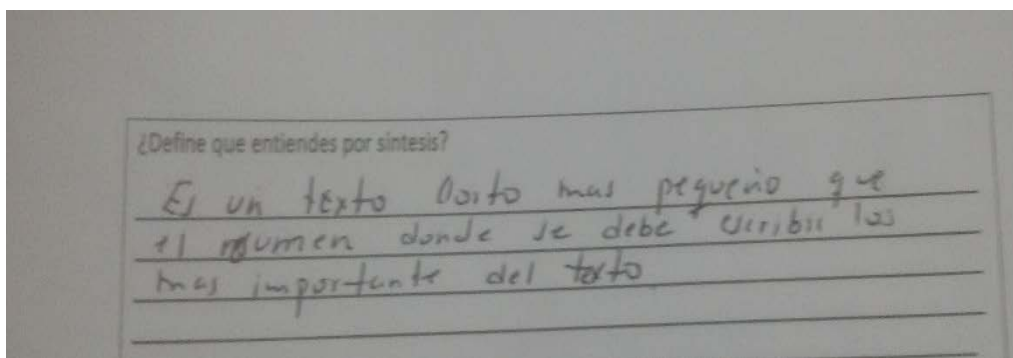 ¿Define que entiendes por sintesis?
Es un texto corto mas pequeño que
el resumen donde se debe escribir los
mas importante del texto